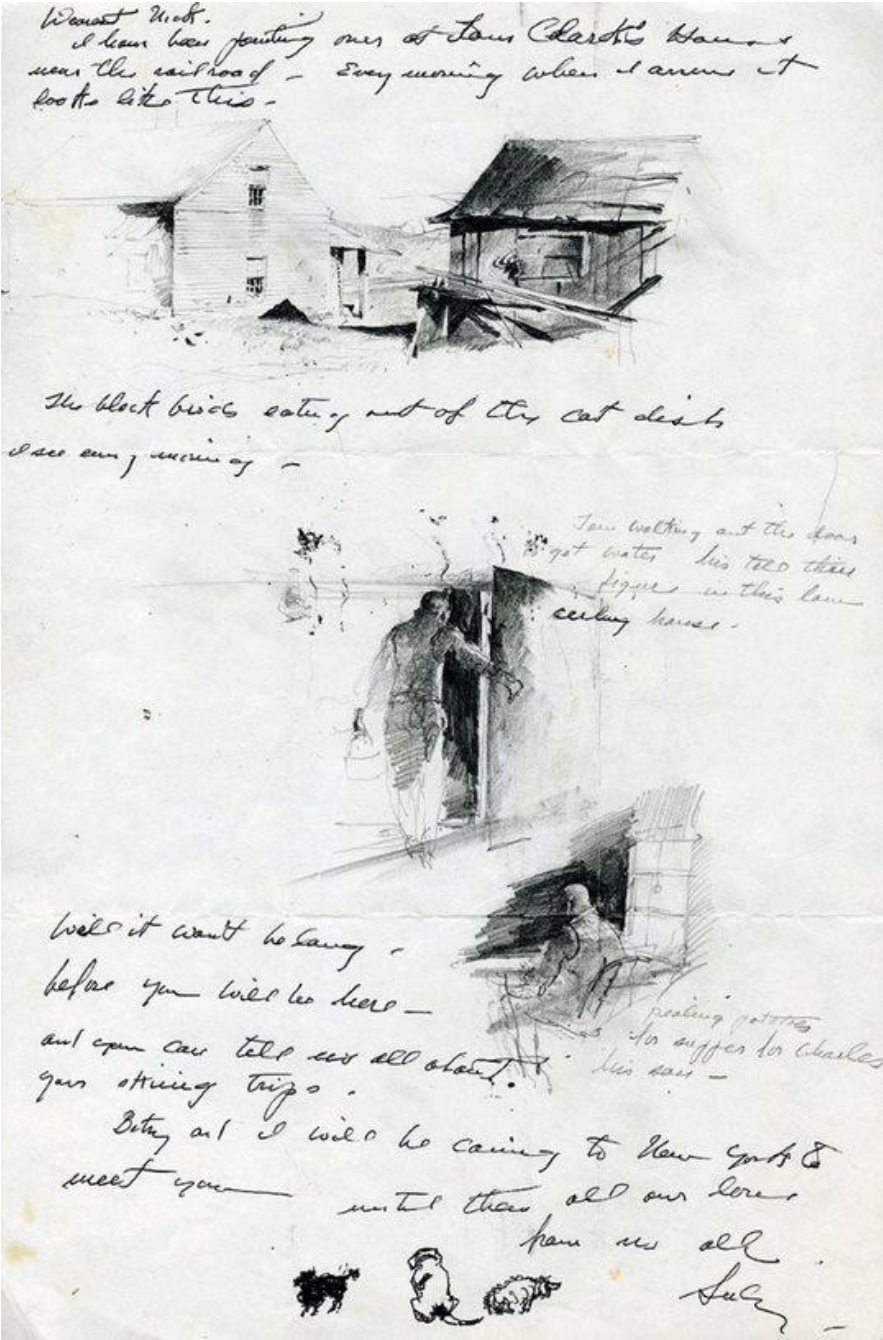 Dearest Nick.
I have been painting over at Tom Clark's House
near the railroad – Every morning when I arrive it
looks like this –
The black birds eating out of the cat dish
I see every morning –
Tom walking out the door
to get water his tall thin
figure in this low
ceiling house –
Well it won't be long –
before you will be here –
and you can tell us all about
your skiing trips.
pealing potatoes
for supper for Charles
his son –
Betsy and I will be coming to New York to
meet you
until then all our love
from us all